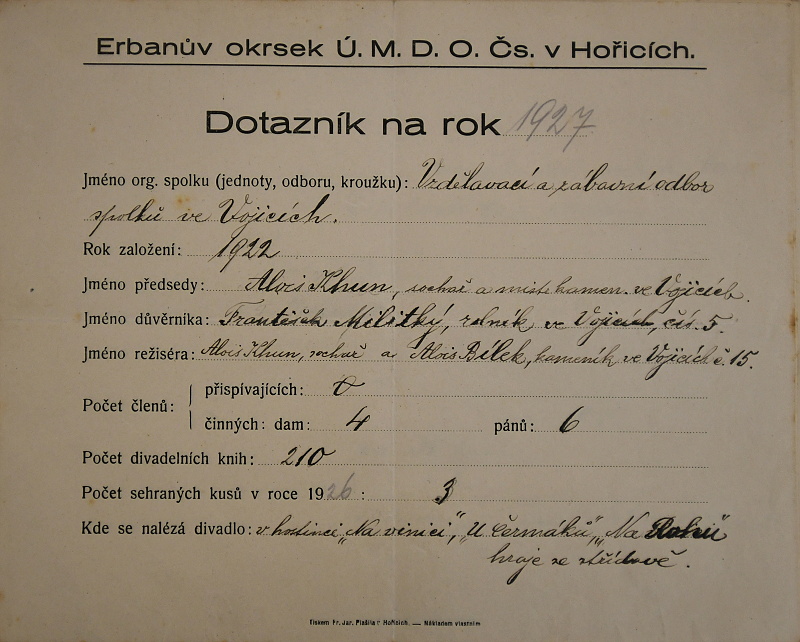 Erbanův okrsek Ú. M. D. O. Čs. v Hořicích.
Dotazník na rok 1927
Jméno org. spolku (jednoty, odboru, kroužku): Vzdělavací a zábavní odbor
spolků ve Vojicích.
Rok založení: 1922
Jméno předsedy: Alois Khun, sochař a mistr kamen. ve Vojicích.
Jméno důvěrníka: František Militký, rolník ve Vojicích, čís. 5.
Jméno režiséra: Alois Khun, sochař a Alois Bílek, kameník ve Vojicích č. 15.
Počet členů:
přispívajících: 0
činných: dam: 4 pánů: 6
Počet divadelních knih: 210
Počet sehraných kusů v roce 1926: 3
Kde se nalézá divadlo: v hostinci „Na vinici", „U Čermáků", „Na Rohu"
hraje se střídavě.
Tiskem Fr. Jar. Plašila v Hořicích. — Nákladem vlastním